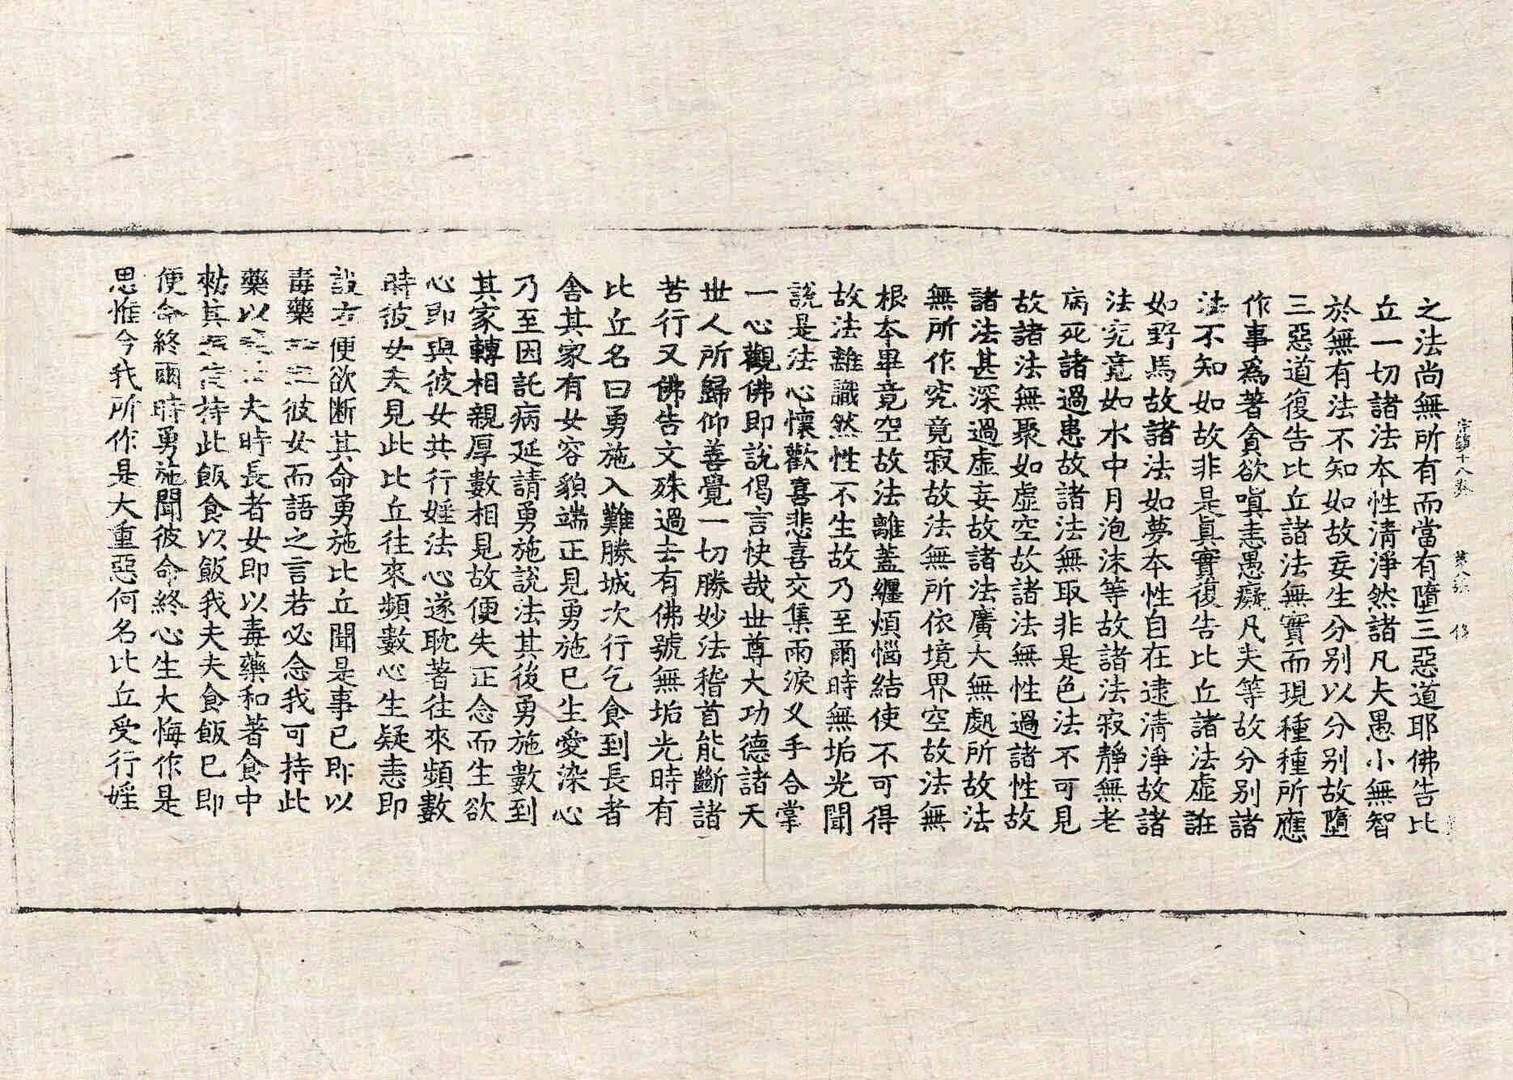 宗鏡十八卷 第八張 俗
之法尚無所有而當有墮三惡道耶佛告比
丘一切諸法本性清淨然諸凡夫愚小無智
於無有法不知如故妄生分别以分别故墮
三惡道復告比丘諸法無實而現種種所應
作事為著貪欲嗔恚愚癡凡夫等故分别諸
法不知如故非是眞實復告比丘諸法虛誑
如野馬故諸法如夢本性自在逮清淨故諸
法究竟如水中月泡沫等故諸法寂靜無老
病死諸過患故諸法無取非是色法不可見
故諸法無聚如虛空故諸法無性過諸性故
諸法甚深過虛妄故諸法廣大無處所故法
無所作究竟寂故法無所依境界空故法無
根本畢竟空故法離蓋纏煩惱結使不可得
故法離識然性不生故乃至爾時無垢光聞
說是法心懷歡喜悲喜交集雨淚叉手合掌
一心觀佛即說偈言快哉世尊大功德諸天
世人所歸仰善覺一切勝妙法稽首能斷諸
苦行又佛告文殊過去有佛號無垢光時有
比丘名曰勇施入難勝城次行乞食到長者
舍其家有女容貌端正見勇施已生愛染心
乃至因託病延請勇施說法其後勇施數到
其家轉相親厚數相見故便失正念而生欲
心即與彼女共行婬法心遂耽著往來頻數
時彼女夫見此比丘往來頻數心生疑恚即
設方便欲断其命勇施比丘聞是事已即以
毒藥彼女而語之言若必念我可持此
藥以夫時長者女即以毒藥和著食中
其持此飯食以飯我夫夫食飯已即
便命終爾時勇施聞彼命終心生大悔作是
思惟今我所作是大重惡何名比丘受行婬